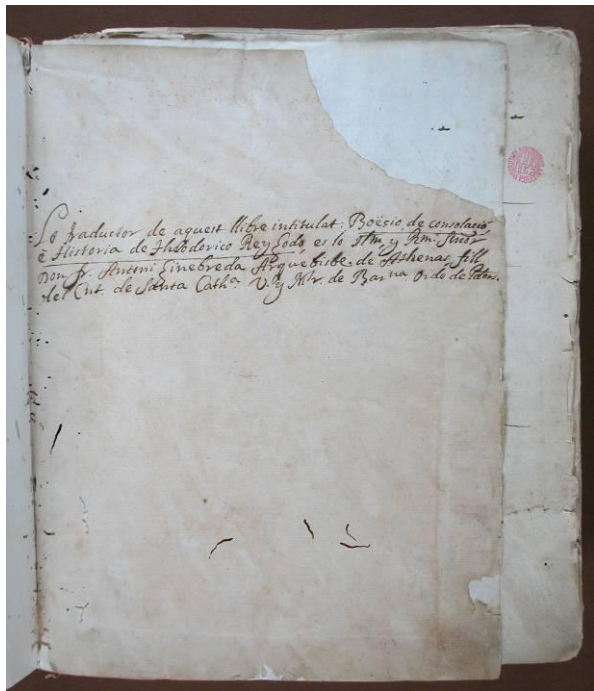 Lo traductor de aquest llibre intitulat: Boëcio, de consolació
è Historia de Theodorico Rey Godo es lo Illm. y Rm. Señor
Don Fr. Antoni Ginebreda Arquebisbe de Athenas, fill
del Cnt. de Santa Cathª. V. y Mr. de Barna Orde de